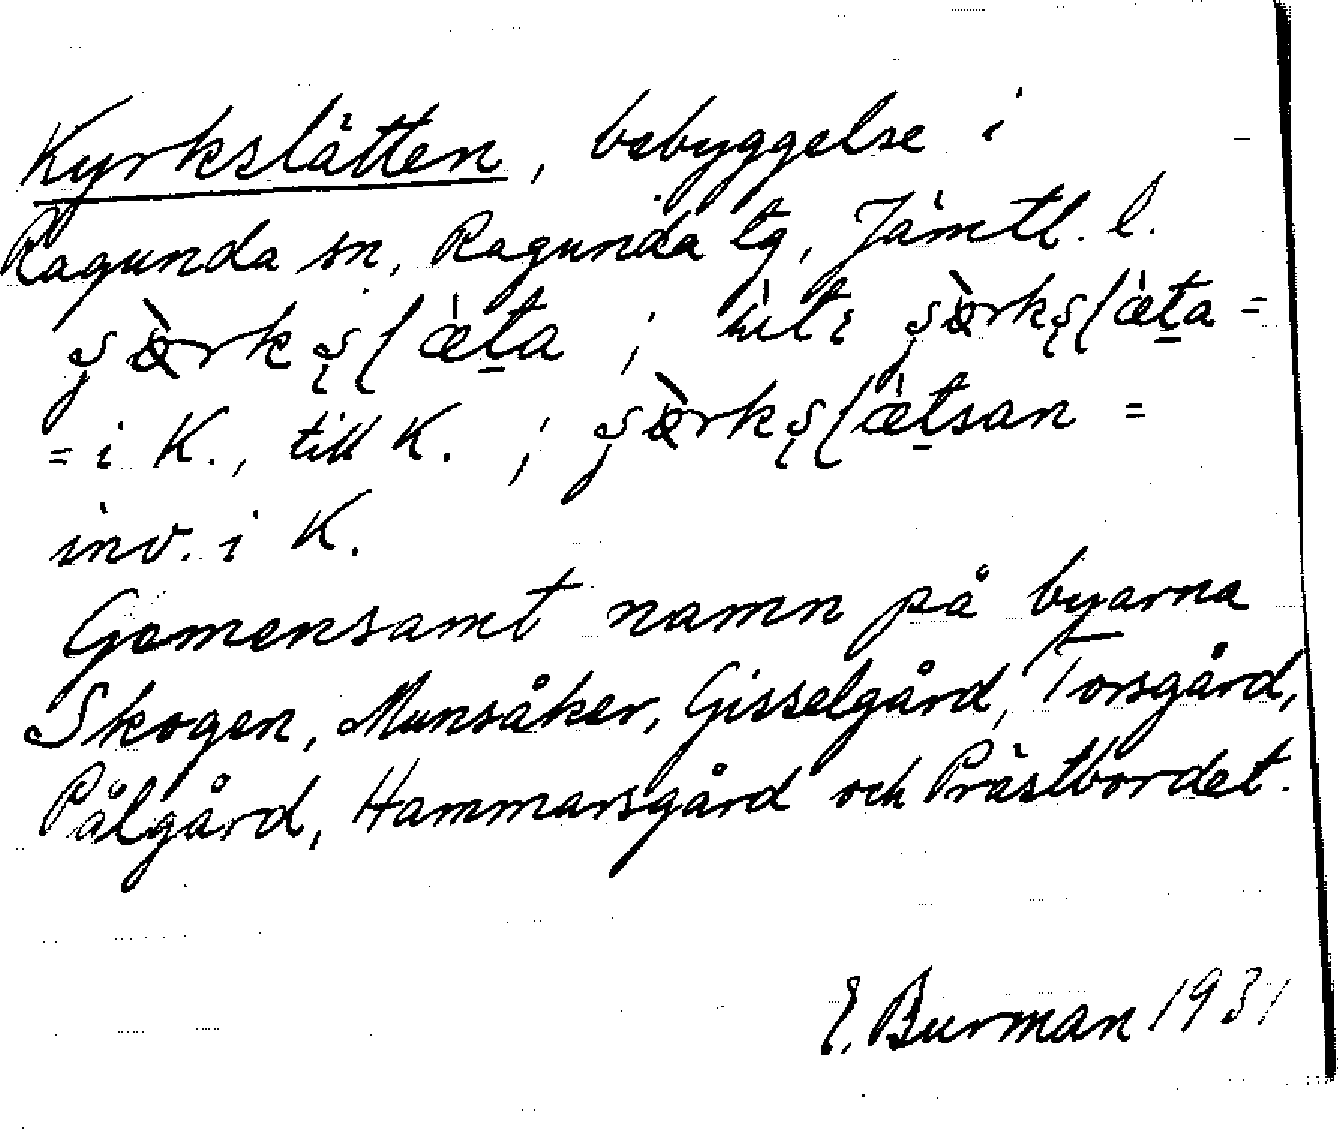 Kyrkslätten, bebyggelse i
Ragunda sn, Ragunda tg, Jämtl. l.
=
= i K., till K. ; =
inv. i K.
Gemensamt namn på byarna
Skogen, Munsåker, Gisselgård, Torsgård,
Pålgård, Hammarsgård och Prästbordet.
E. Burman 1931